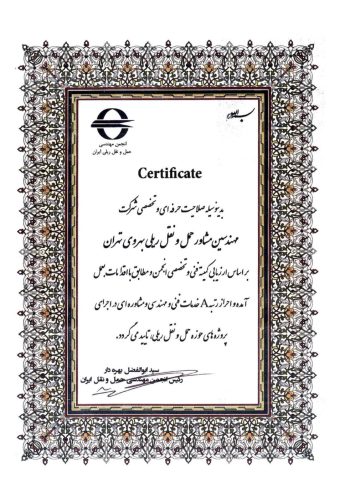 انجمن مهندسی
حمل و نقل ریلی ایران
Certificate
بدینوسیله صلاحیت حرفه ای و تخصصی شرکت
مهندسین مشاور حمل و نقل ریلی بهروی تهران
بر اساس ارزیابی کمیته فنی و تخصصی انجمن و مطابق با اقدامات بعمل
آمده و احراز رتبه A خدمات فنی و مهندسی و مشاوره ای در اجرای
پروژه های حوزه حمل و نقل ریلی، تایید می گردد.
سید ابوالفضل بهره دار
رئیس انجمن مهندسی حمل و نقل ریلی ایران